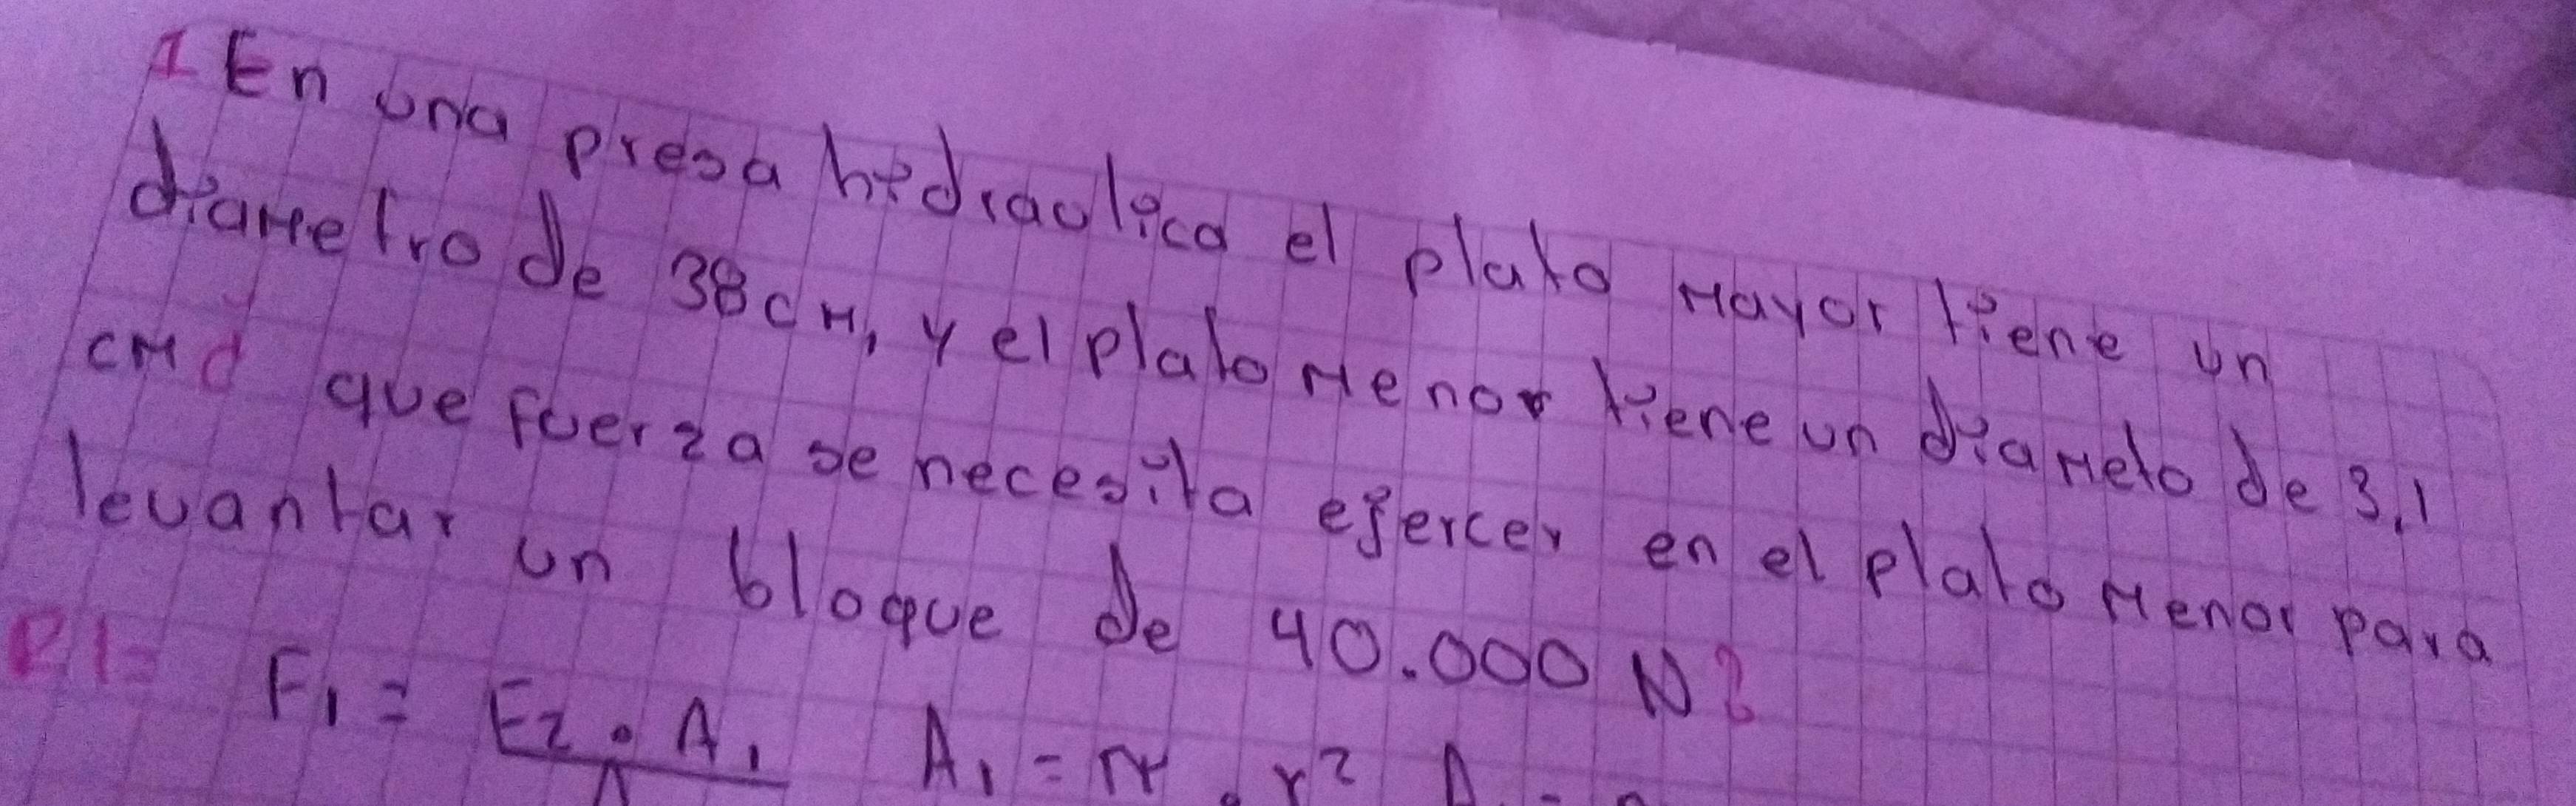 1 En una presa hidraulica el plato mayor tiene un
diametro de 38 cm, y el plato menor tiene un diameto de 3,1
cm ¿ que fuerza se necesita ejercer en el plato menor para
levantar un bloque de 40.000 N?
R1= F1 = F2 . A1 A1 = π . r2